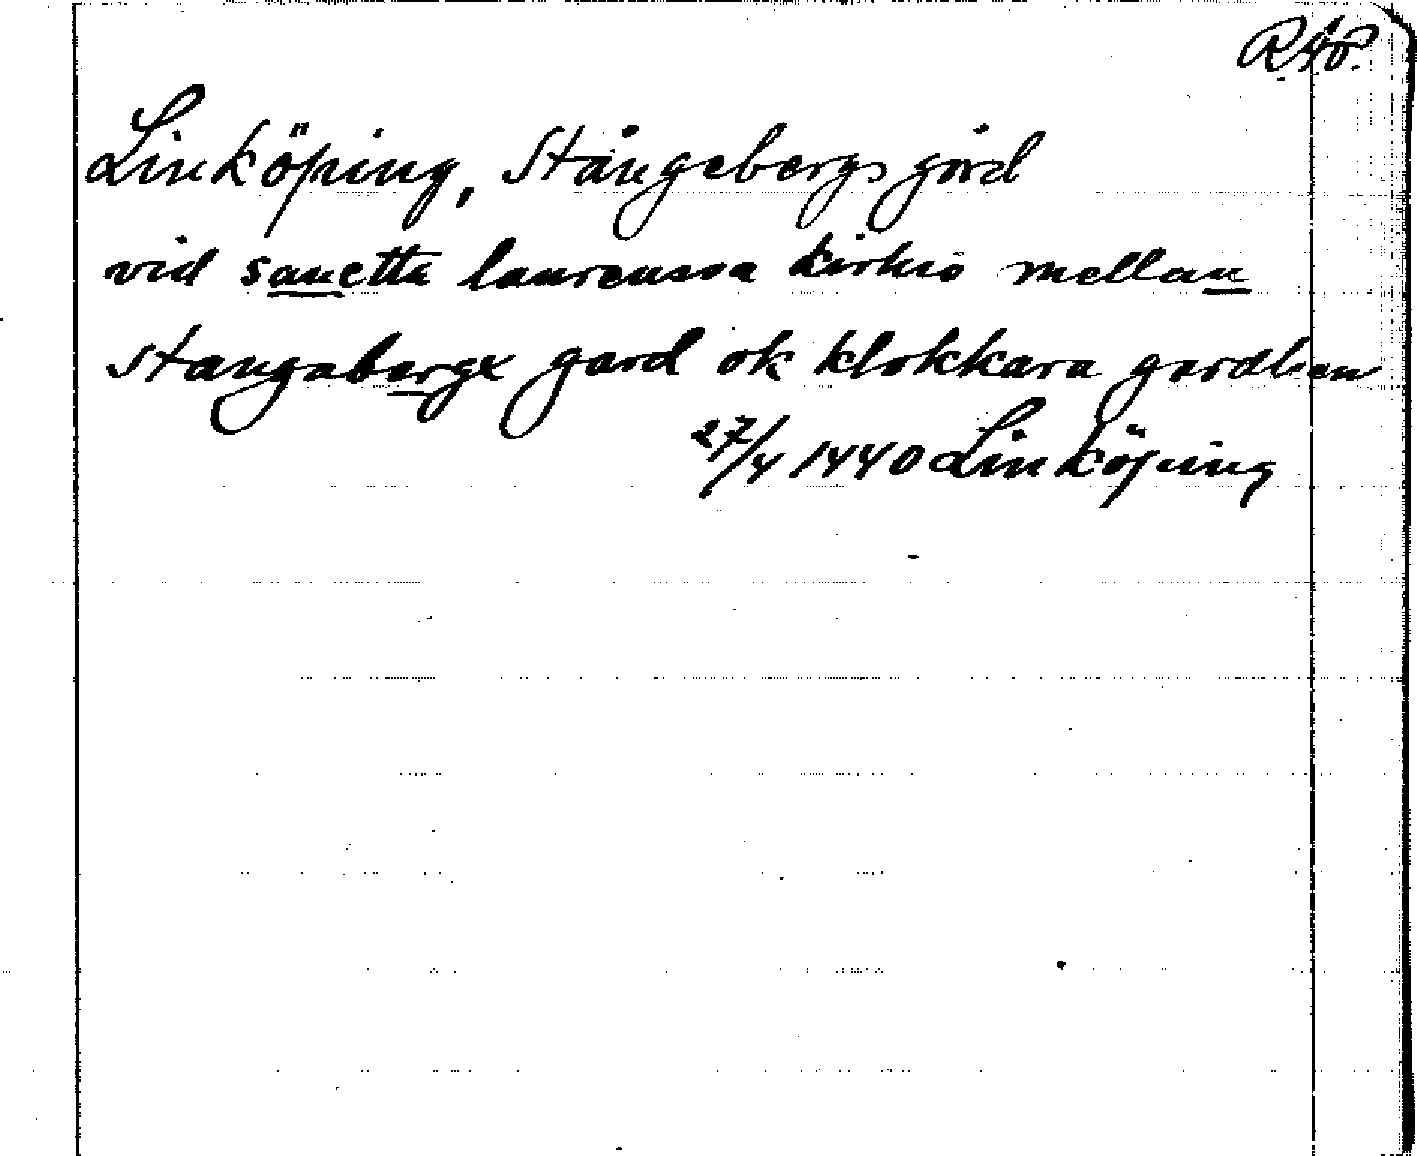 RAp.
Linköping, Stångebergs gård
vid sanctta laurenssa kirkio mellan
stangabergx gard ok klokkara gardhen
27/4 1440 Linköping